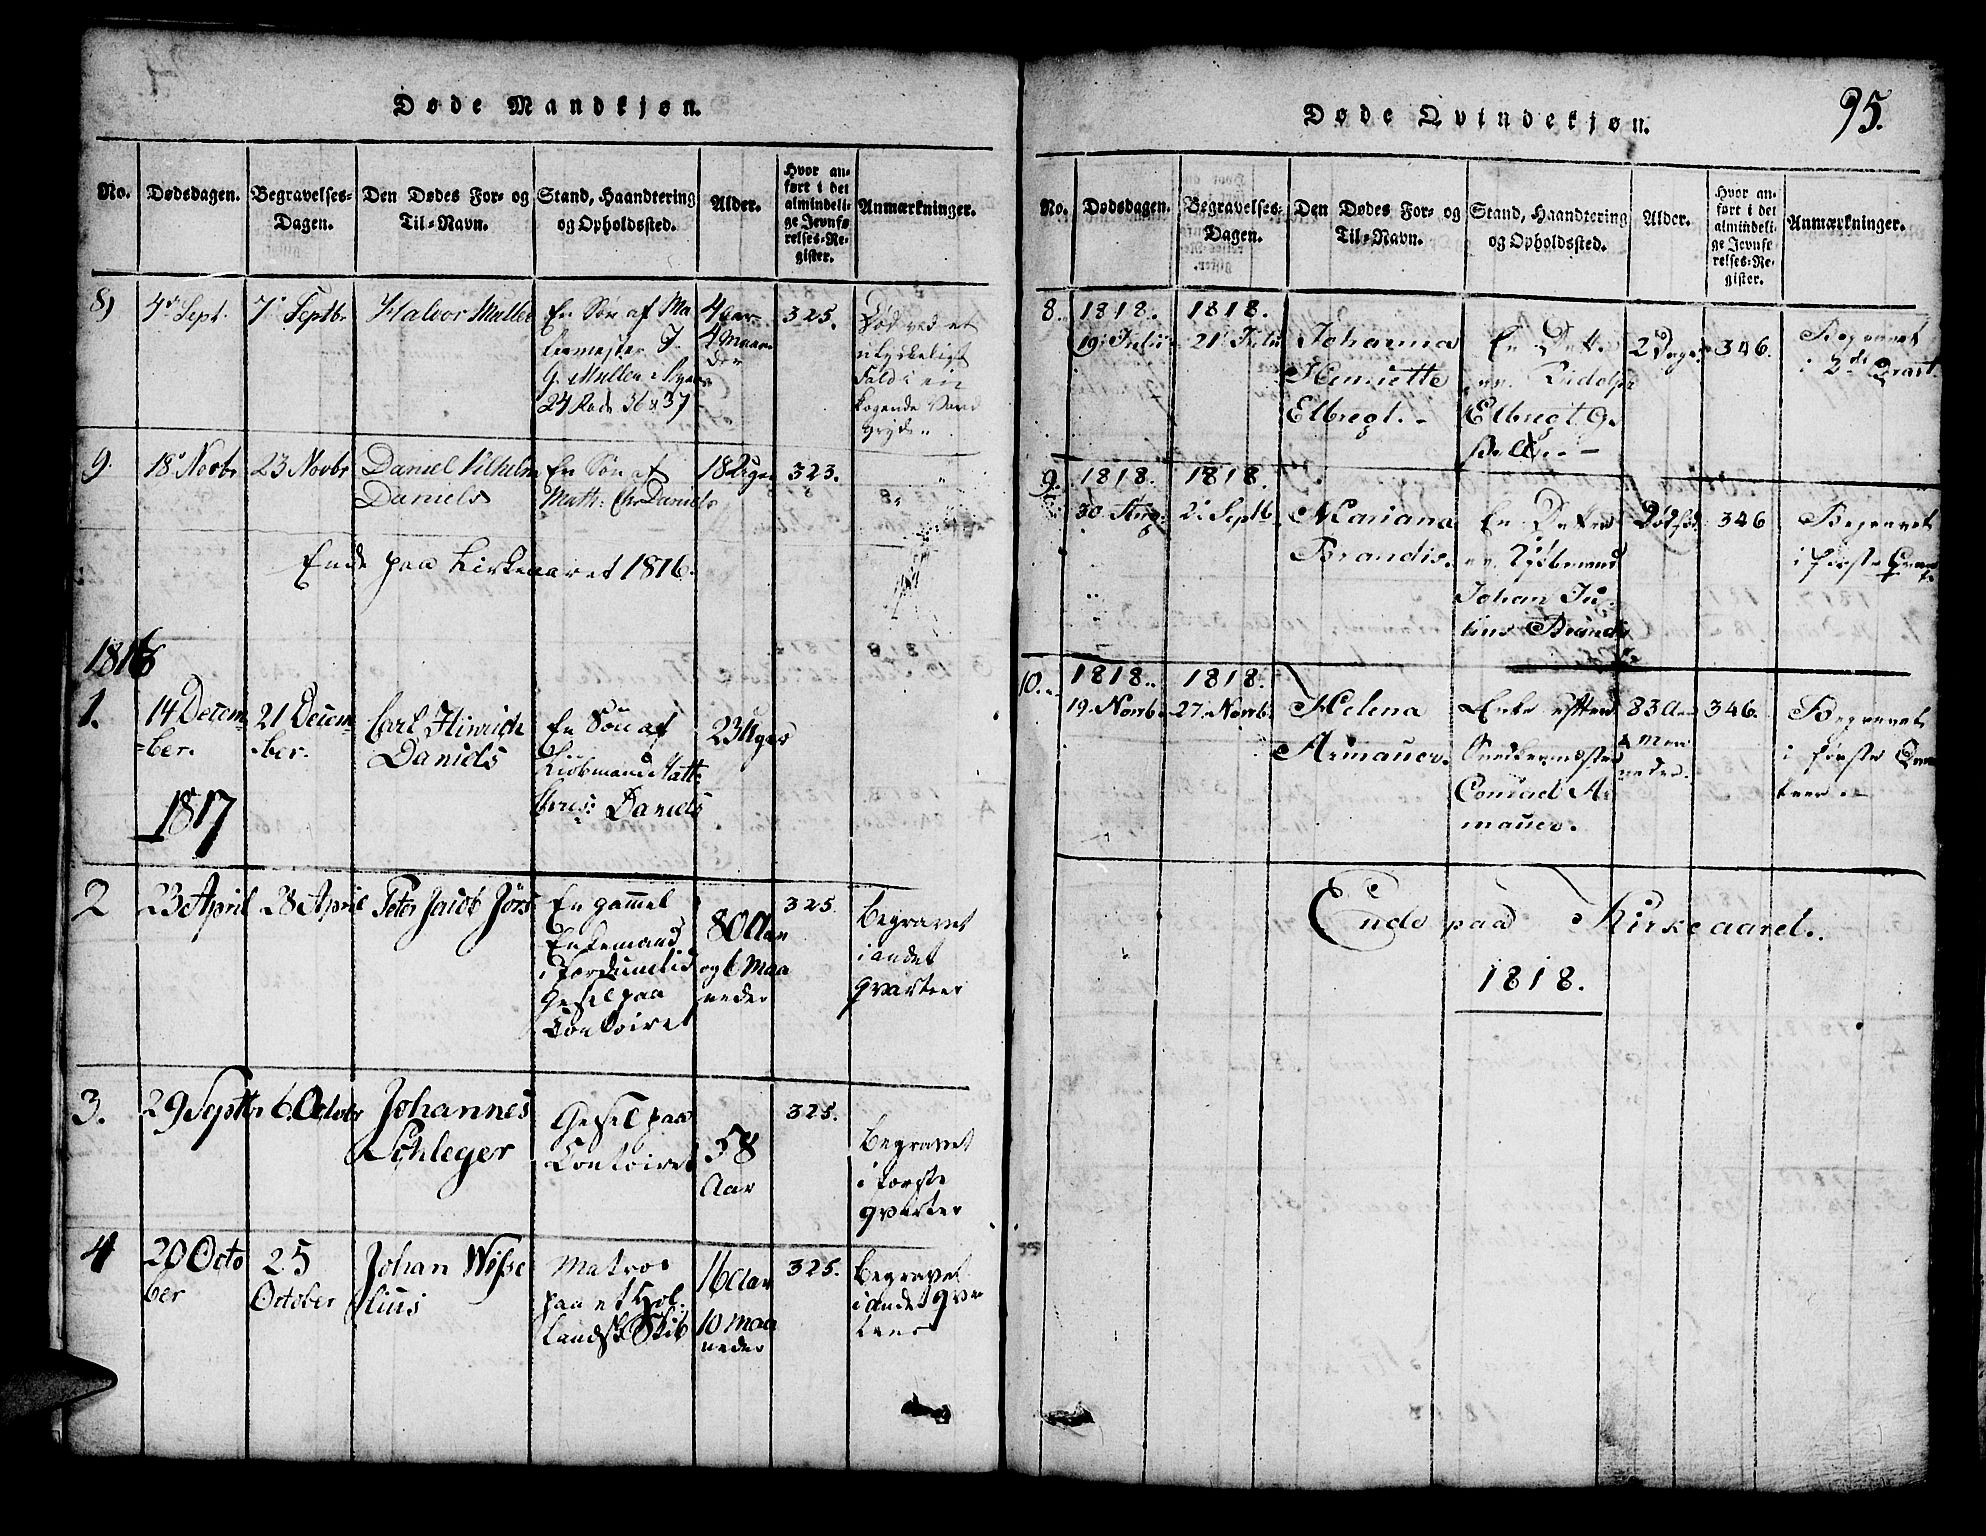 Døde Mandkjøn.
No.
Dødsdagen.
Begravelses-
Dagen.
Den Dødes For- og
Til-Navn.
Stand, Haandtering
og Opholdssted.
Alder.
Hvor an-
ført i det
almindeli-
ge Jevnfø-
relses-Re-
gister.
Anmærkninger.
8)
4de Sept.
7de Septbr
Halvor Muller
En Søn af Ma
lermester J.
G. Muller
24 Rode 36 & 37
4 Aar
4 Maane
der
325.
Død ved et
ulykkeligt
Fald i en
kogende Vand
Gryde
9.
18de Novbr
23 Novbr
Daniel Vilhelm
Daniels
En Søn af
Math: Chr Daniels
18 Uger
323.
Ende paa Kirkeaaret 1816.
1816
1.
14 Decem-
-ber.
21 Decem-
-ber.
Carl Hinrich
Daniels
En Søn af
Kiøbmand Matt:
Chris: Daniels
23 Uger
1817
2
23 April
28 April
Peter Jacob Jørs
En gammel
Enkemand
i fordumtid
Gesel paa
Contoiret
80 Aar
og 6 Maa
neder
325.
Begravet
i andet
qvarteer
3.
29 Septbr
6 Octobr
Johannes
Schleger
Gesel paa
Contoiret
58
Aar
325.
Begravet
i første
qvarteer
4
20 Octo
ber
25
October
Johan Wisse
lius
Matros
paa et Hol-
landsk Skib
16 Aar
10 Maa
neder
325.
Begravet
i andet qvar
teer
Døde Qvindekjøn.
95.
No.
Dødsdagen.
Begravelses-
Dagen.
Den Dødes For- og
Til-Navn.
Stand, Haandtering
og Opholdssted.
Alder.
Hvor an-
ført i det
almindeli-
ge Jevnfø-
relses-Re-
gister.
Anmærkninger.
8.
1818.
19: Julii
1818.
21: Julii
Johanna
Henriette
Elbregt.
En Datter
av Ridolph
Elbregt G.
2 Dage
346.
Begravet
i 2det Qvart.
9.
1818.
30 Aug:
1818.
2: Septb.
Mariana
Brandis.
En Datter
av Kjøbmand
Johan Ju-
lius Brandis
Dødfød
346
Begravet
i første Qvar
10.
1818.
19: Novb.
1818.
27: Novb.
Helena
Armauer.
Enke efter
Snedkermester
Conrad Ar
mauer.
83 Aar
4 Maa
neder.
346.
Begravet
i første Qvar
teer
Ende paa Kirkeaaret.
1818.